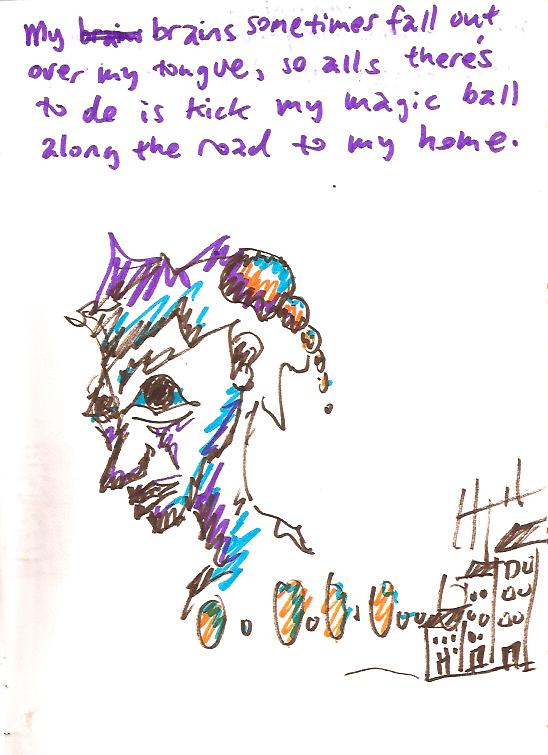 My brains brains sometimes fall out
over my tongue, so alls there's
to do is kick my magic ball
along the road to my home.